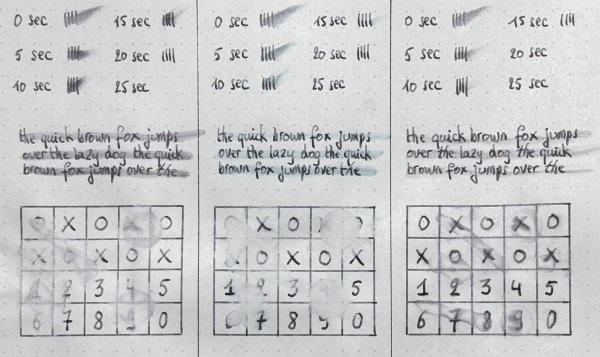 0 sec 15 sec
5 sec 20 sec
10 sec 25 sec
the quick brown fox jumps
over the lazy dog the quick
brown fox jumps over the
O X O X O
X O X O X
1 2 3 4 5
6 7 8 9 0
0 sec 15 sec
5 sec 20 sec
10 sec 25 sec
the quick brown fox jumps
over the lazy dog the quick
brown fox jumps over the
X O
O X O X
1 2 3 5
7 8 9 0
0 sec 15 sec
5 sec 20 sec
10 sec 25 sec
the quick brown fox jumps
over the lazy dog the quick
brown fox jumps over the
O X O X O
X O X O X
1 2 3 4 5
6 7 8 9 0